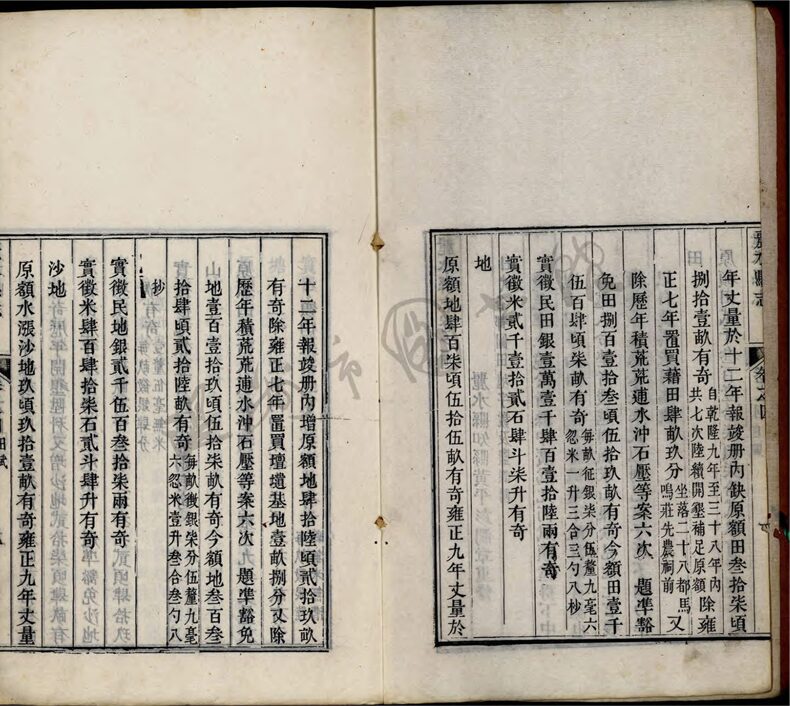 年丈量於十二年報竣册內缺原額田叁拾柒頃
捌拾壹畝有奇自乾隆九年至三十八年內共七次陸續開墾補足原額除雍
正七年置買藉田肆畝玖分坐落二十八都馬鳴莊先農祠前又
除歷年積荒荒逋水沖石壓等案六次 題準豁
免田捌百壹拾叁頃伍拾玖畝有奇今額田壹千
伍百肆頃柒畝有奇每畝征銀柒分伍釐九毫六忽米一升三合三勺八秒
實徵民田銀壹萬壹千肆百壹拾陸兩有奇
實徵米貳千壹拾貳石肆斗柒升有奇
地
原額地肆百柒頃伍拾伍畝有奇雍正九年丈量於
十二年報竣册內增原額地肆拾陸頃貳拾玖畝
有奇除雍正七年置買壇壝基地壹畝捌分又除
歷年積荒荒逋水沖石壓等案六次 題準豁免
地壹百壹拾玖頃伍拾柒畝有奇今額地叁百叁
拾肆頃貳拾陸畝有奇每畝徵銀柒分伍釐九毫六忽米壹升叁合叁勺八
抄
實徵民地銀貳千伍百叁拾柒兩有奇
實徵米肆百肆拾柒石貳斗肆升有奇
沙地
原額水漲沙地玖頃玖拾壹畝有奇雍正九年丈量